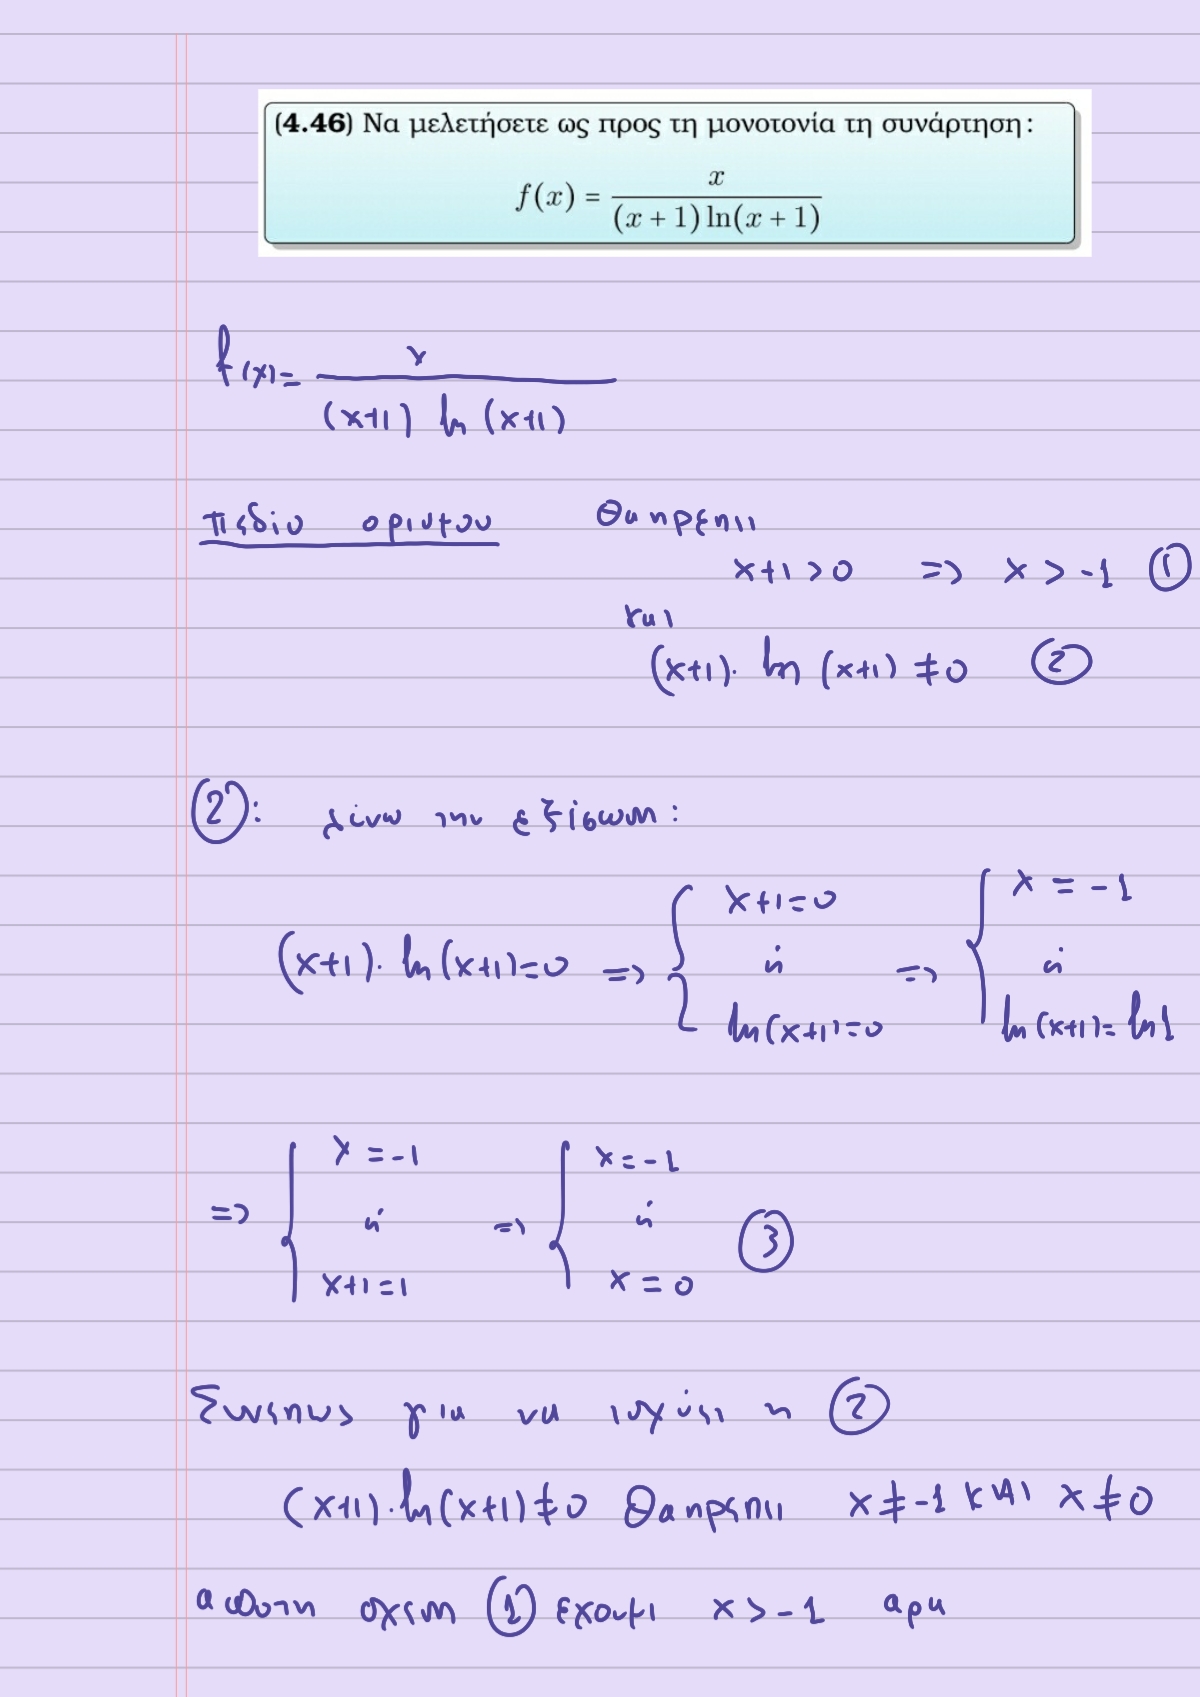 (4.46) Να μελετήσετε ως προς τη μονοτονία τη συνάρτηση:
f(x) = x / ((x + 1) ln(x + 1))
f(x) = x / ((x+1) ln (x+1))
πεδίο ορισμου Θα πρεπει
x+1 > 0 => x > -1 ①
και
(x+1) · ln (x+1) ≠ 0 ②
②: λύνω την εξίσωση:
(x+1) · ln (x+1) = 0 => { x+1=0 ή ln(x+1)=0 => { x = -1 ή ln(x+1) = ln1
=> { x = -1 ή x+1=1 => { x = -1 ή x = 0 ③
Συνεπως για να ισχύει η ②
(x+1) · ln(x+1) ≠ 0 Θα πρεπει x ≠ -1 ΚΑΙ x ≠ 0
σχεση ① εχουμε x > -1 αρα